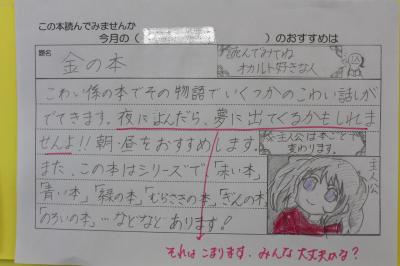 この本読んでみませんか
今月の(　　　)のおすすめは
題名
金の本
読んでみてね
オカルト好きな人
こわい係の本でその物語でいくつかのこわい話しが
でてきます。夜によんだら、夢に出てくるかもしれま
せんよ!!朝・昼をおすすめします。
主人公は本ごとで
変わります。
また、この本はシリーズで「赤い本」
「青い本」「緑の本」「むらさきの本」「ぎんの本」
「のろいの本」…などなどあります!
主人公
それはこまります。みんな大丈夫かな?